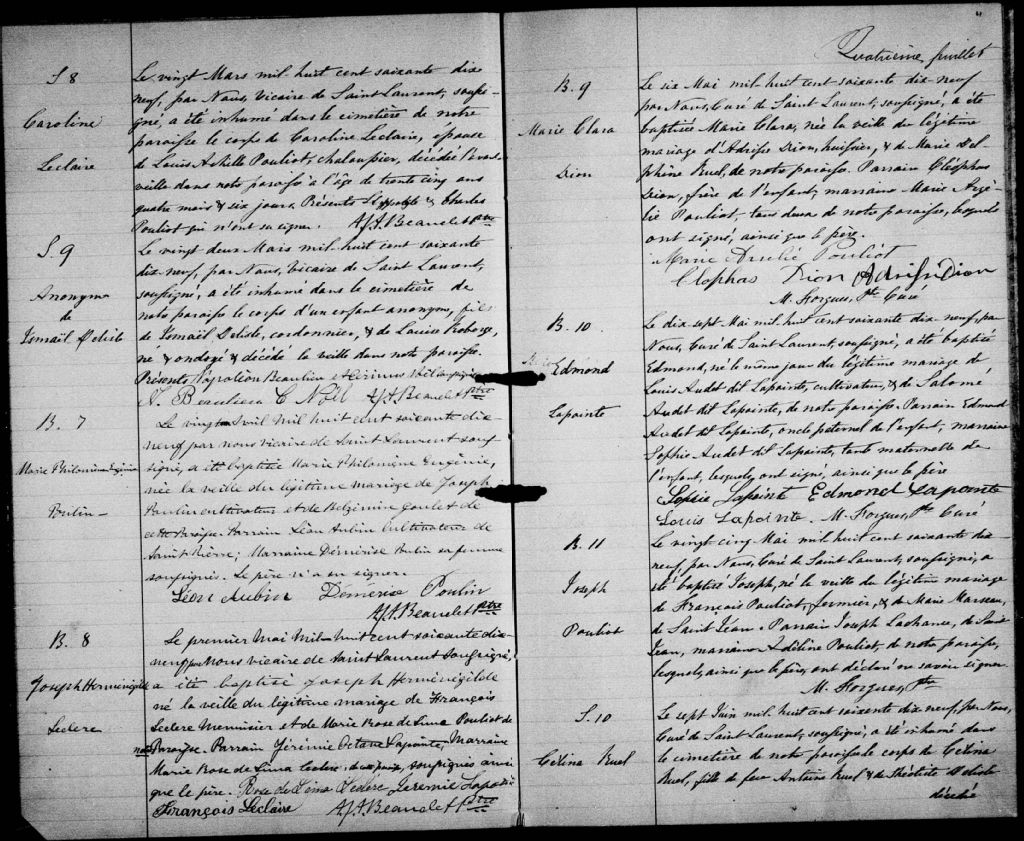 S 8
Caroline
Leclaire
Le vingt Mars mil-huit cent soixante dix
neuf, par Nous, Vicaire de Saint Laurent, soussi-
gné, a été inhumé dans le cimetière de notre
paroisse le corps de Caroline Leclaire, epouse
de Louis Achille Pouliot, chaloupier, décédée l'avant
veille dans notre paroisse à l'âge de trente cinq ans
quatre mois & six jours. Présents Hypolyte & Charles
Pouliot qui n'ont su signer. A.J.A. Beaudet Ptre
S. 9
Anonyme
de
Ismaël Delisle
Le vingt deux Mars mil-huit cent soixante
dix-neuf, par Nous, Vicaire de Saint Laurent,
soussigné, a été inhumé dans le cimetière de
notre paroisse le corps d'un enfant anonyme, fils
de Ismaël Delisle, cordonnier, & de Louise Roberge,
né & ondoyé & décédé la veille dans notre paroisse.
Présents Napoléon Beaulieu et
N. Beaulieu C. Noël A.J.A. Beaudet Ptre
B. 7
Marie Philomène Eugénie
Poulin
Le vingt Avril Mil huit cent soixante dix
neuf par nous vicaire de Saint Laurent sous
signé, a été baptisé Marie Philomène Eugénie,
née la veille du légitime mariage de Joseph
Poulin cultivateur et de Belzémire Goulet de
cette Paroisse. Parrain Léon Aubin Cultivateur de
Saint Pierre, Marraine Démérise Poulin sa femme
soussignés. Le père n'a su signer.
Léon Aubin Démérise Poulin
A.J.A. Beaudet Ptre
B. 8
Joseph Herménégilde
Leclerc
Le premier Mai Mil-huit cent soixante dix
neuf par Nous vicaire de Saint Laurent Soussigné,
a été baptisé Joseph Herménégilde
né la veille du légitime mariage de François
Leclerc Menuisier et de Marie Rose de Lima Pouliot de
notre Paroisse. Parrain Jérémie Octave Lapointe, Marraine
Marie Rose de Lima Leclerc, soussignés ainsi
que le père. Rose de Lima Leclerc Jeremie Lapointe
François Leclaire A.J.A. Beaudet Ptre
Quatrième feuillet
B. 9
Marie Clara
Dion
Le six Mai mil-huit cent soixante dix-neuf
par Nous, Curé de Saint Laurent, soussigné, a été
baptisée Marie Clara, née la veille du légitime
mariage d'Adrisse Dion, huissier, & de Marie Del-
phine Ruel, de notre paroisse. Parrain Cléophas
Dion, frère de l'enfant, marraine Marie Auré-
lie Pouliot, tous deux de notre paroisse, lesquels
ont signé, ainsi que le père.
Marie Aurélie Pouliot
Clophas Dion Adrisse Dion
M. Forgues, Ptre Curé
B. 10.
Edmond
Lapointe
Le dix sept Mai mil-huit cent soixante dix-neuf, par
Nous, Curé de Saint Laurent, soussigné, a été baptisé
Edmond, né le même jour du légitime mariage de
Louis Audet dit Lapointe, cultivateur, & de Salomé
Audet dit Lapointe, de notre paroisse. Parrain Edmond
Audet dit Lapointe, oncle paternel de l'enfant, marraine
Sophie Audet dit Lapointe, tante maternelle de
l'enfant, lesquels ont signé, ainsi que le père
Sophie Lapoint Edmond Lapointe
Louis Lapointe M. Forgues, Ptre Curé
B. 11
Joseph
Pouliot
Le vingt cinq Mai mil huit cent soixante dix-
neuf, par Nous, Curé de Saint Laurent, soussigné, a
été baptisé Joseph, né la veille du légitime mariage
de François Pouliot, fermier, & de Marie Marceau,
de Saint Jean. Parrain Joseph Lachance, de Saint
Jean, marraine Adéline Pouliot, de notre paroisse,
lesquels, ainsi que le père, ont déclaré ne savoir signer
M. Forgues, Ptre
S. 10
Célina Ruel
Le sept Juin mil-huit cent soixante dix neuf, par Nous,
Curé de Saint Laurent, soussigné, a été inhumé dans
le cimetière de notre paroisse le corps de Célina
Ruel, fille de feu Antoine Ruel & de Théotiste Delisle
décédée